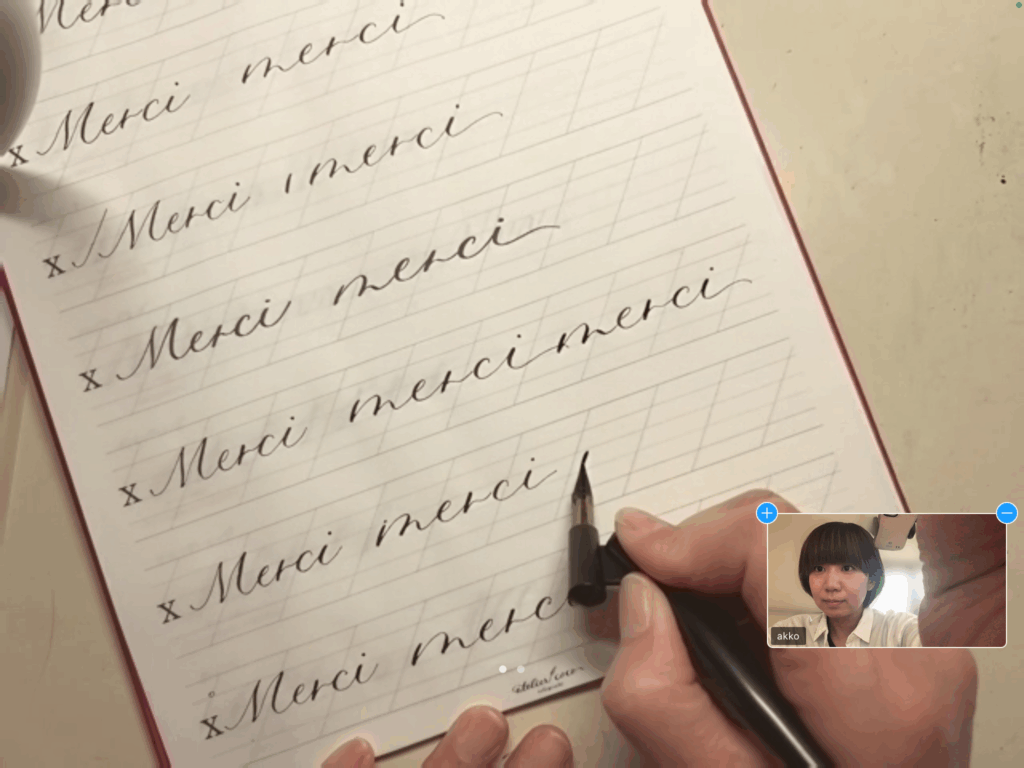 Merci
x Merci merci
x Merci merci
x Merci merci
x Merci merci merci
x Merci merci
x Merci merc
akko